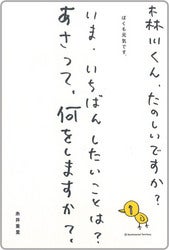 森川くん、たのしいですか?
ぼくも元気です。
いま、いちばんしたいことは?
あさって、何をしますか?
糸井重里